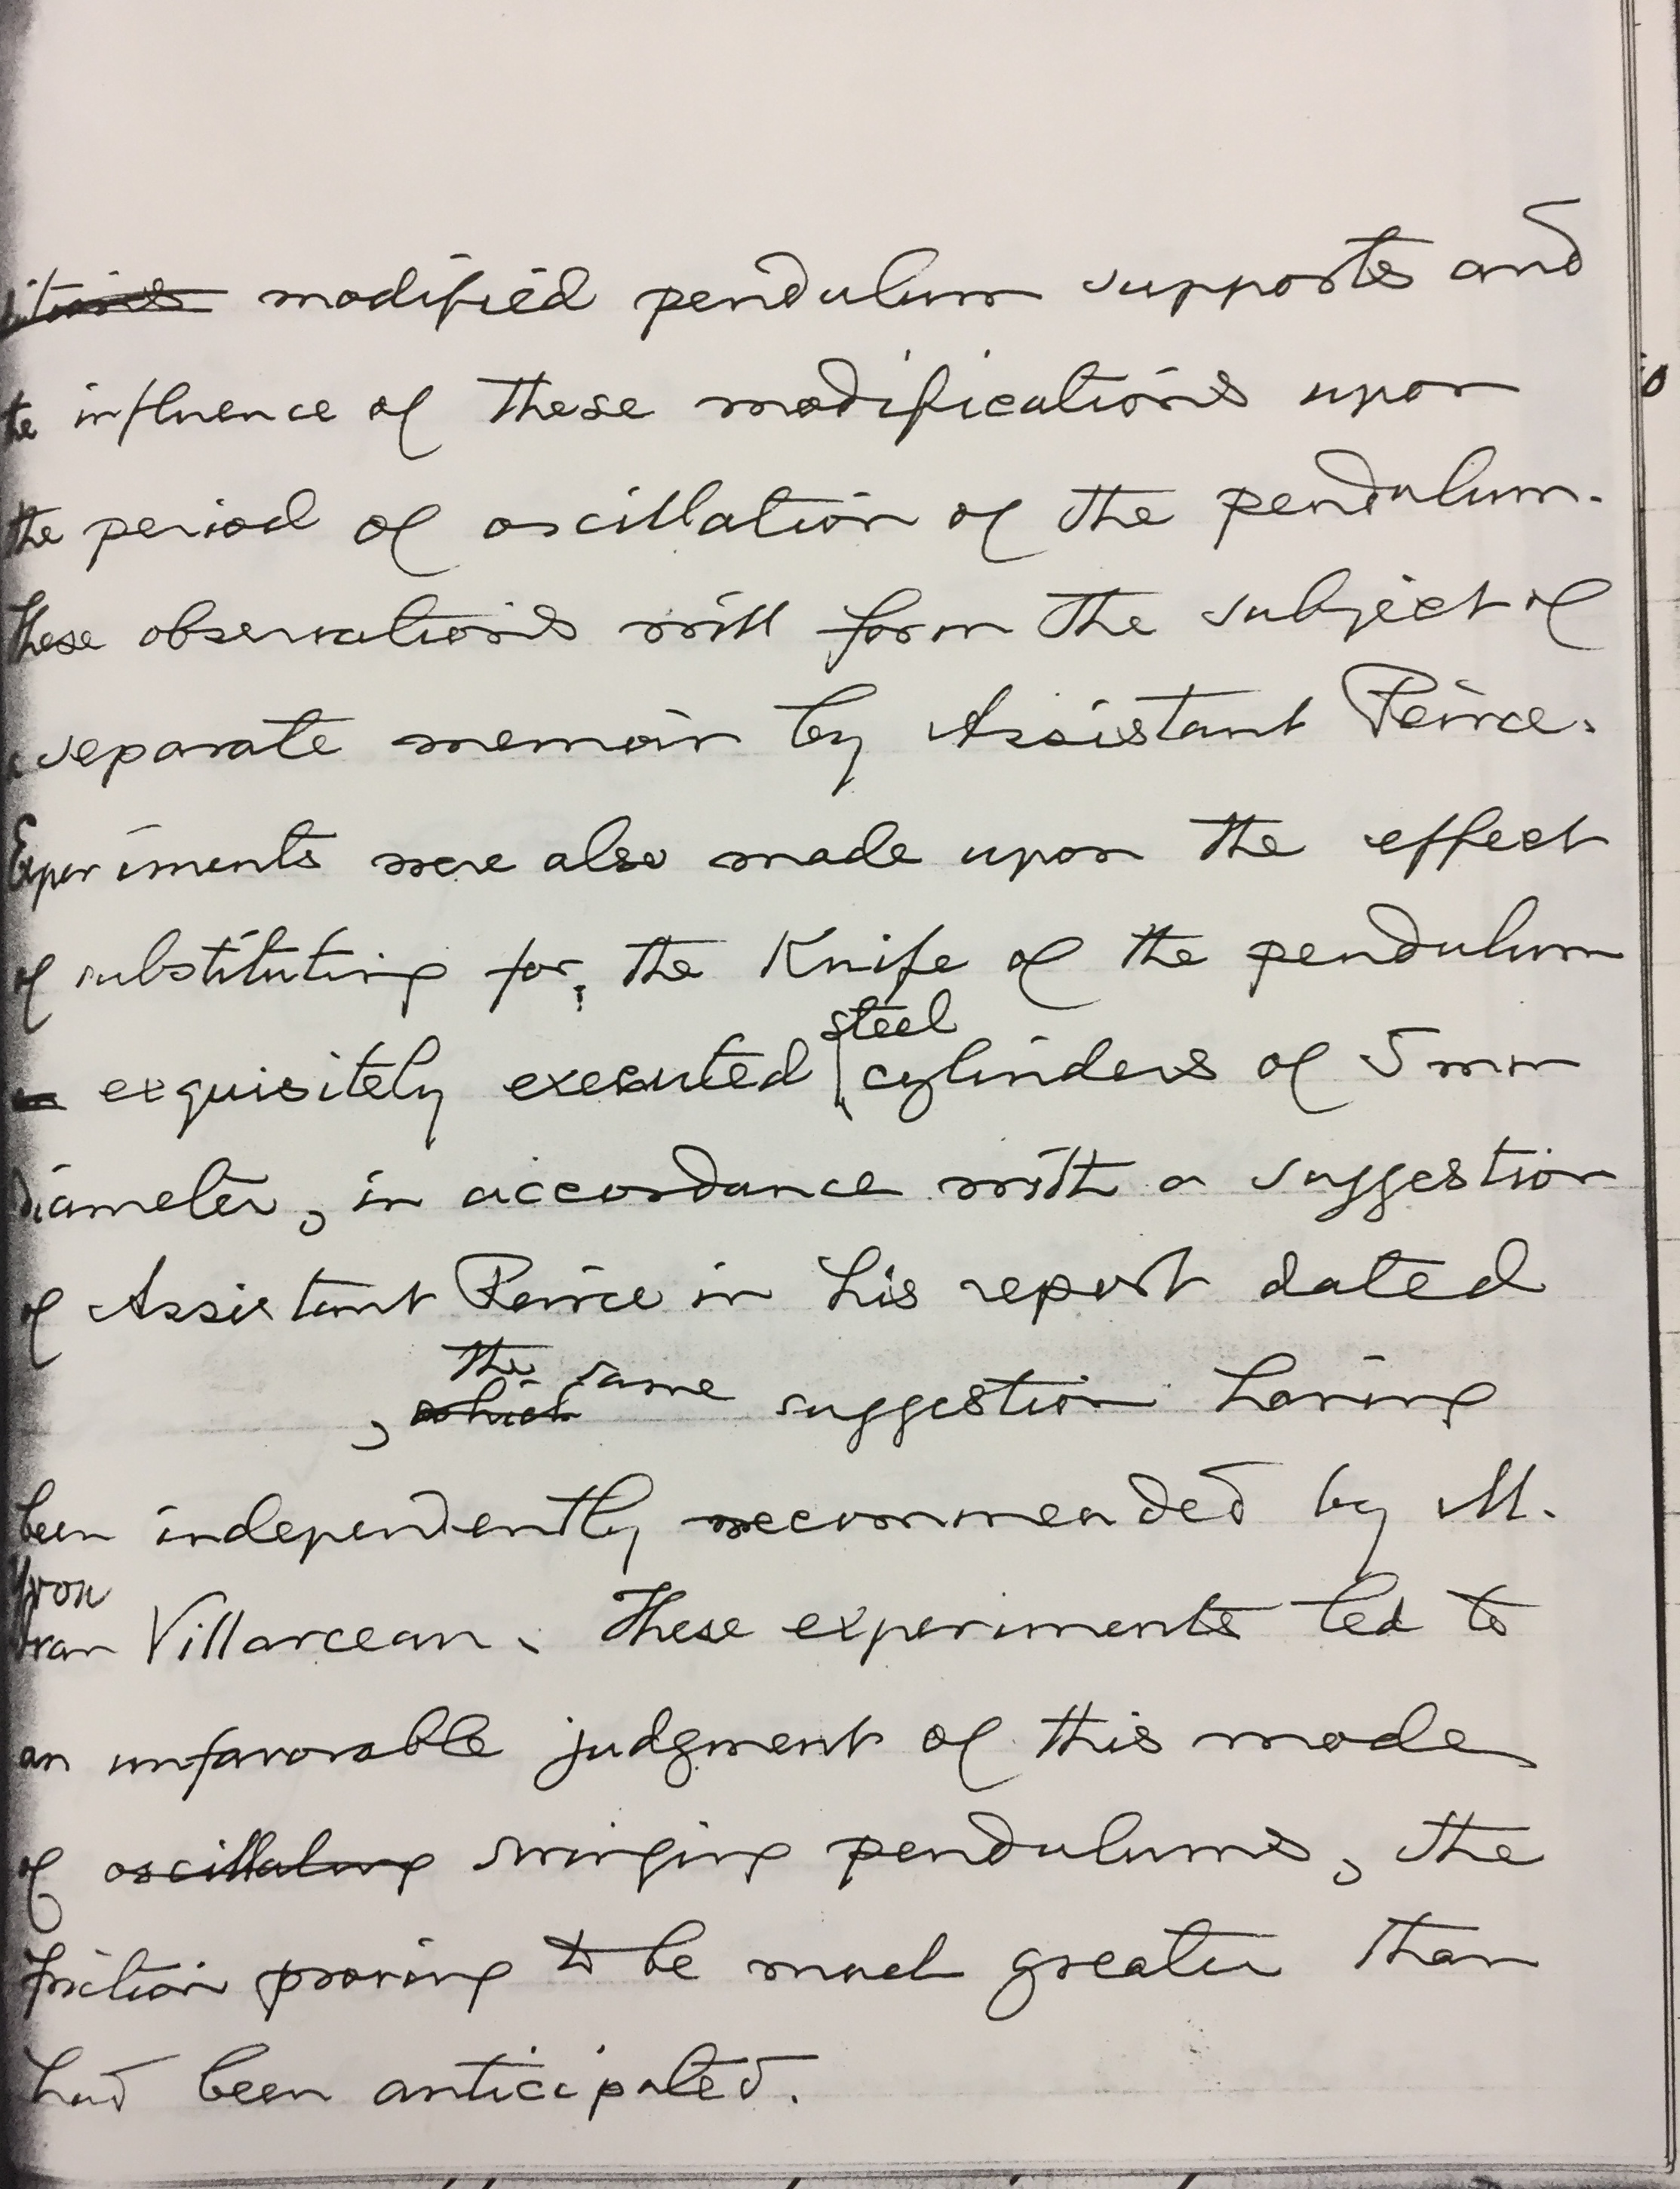 modified pendulum supports and
the influence of these modifications upon
the period of oscillation of the pendulum.
These observations will form the subject of
a separate memoir by Assistant Peirce.
Experiments were also made upon the effect
of substituting for, the Knife of the pendulum
steel
exquisitely executed cylinders of 5 mm
diameter, in accordance with a suggestion
of Assistant Peirce in his report dated
the same
, which suggestion having
been independently recommended by M.
Yvon
Villarceau. These experiments led to
an unfavorable judgment of this mode
of oscillating swinging pendulums, the
friction proving to be much greater than
had been anticipated.